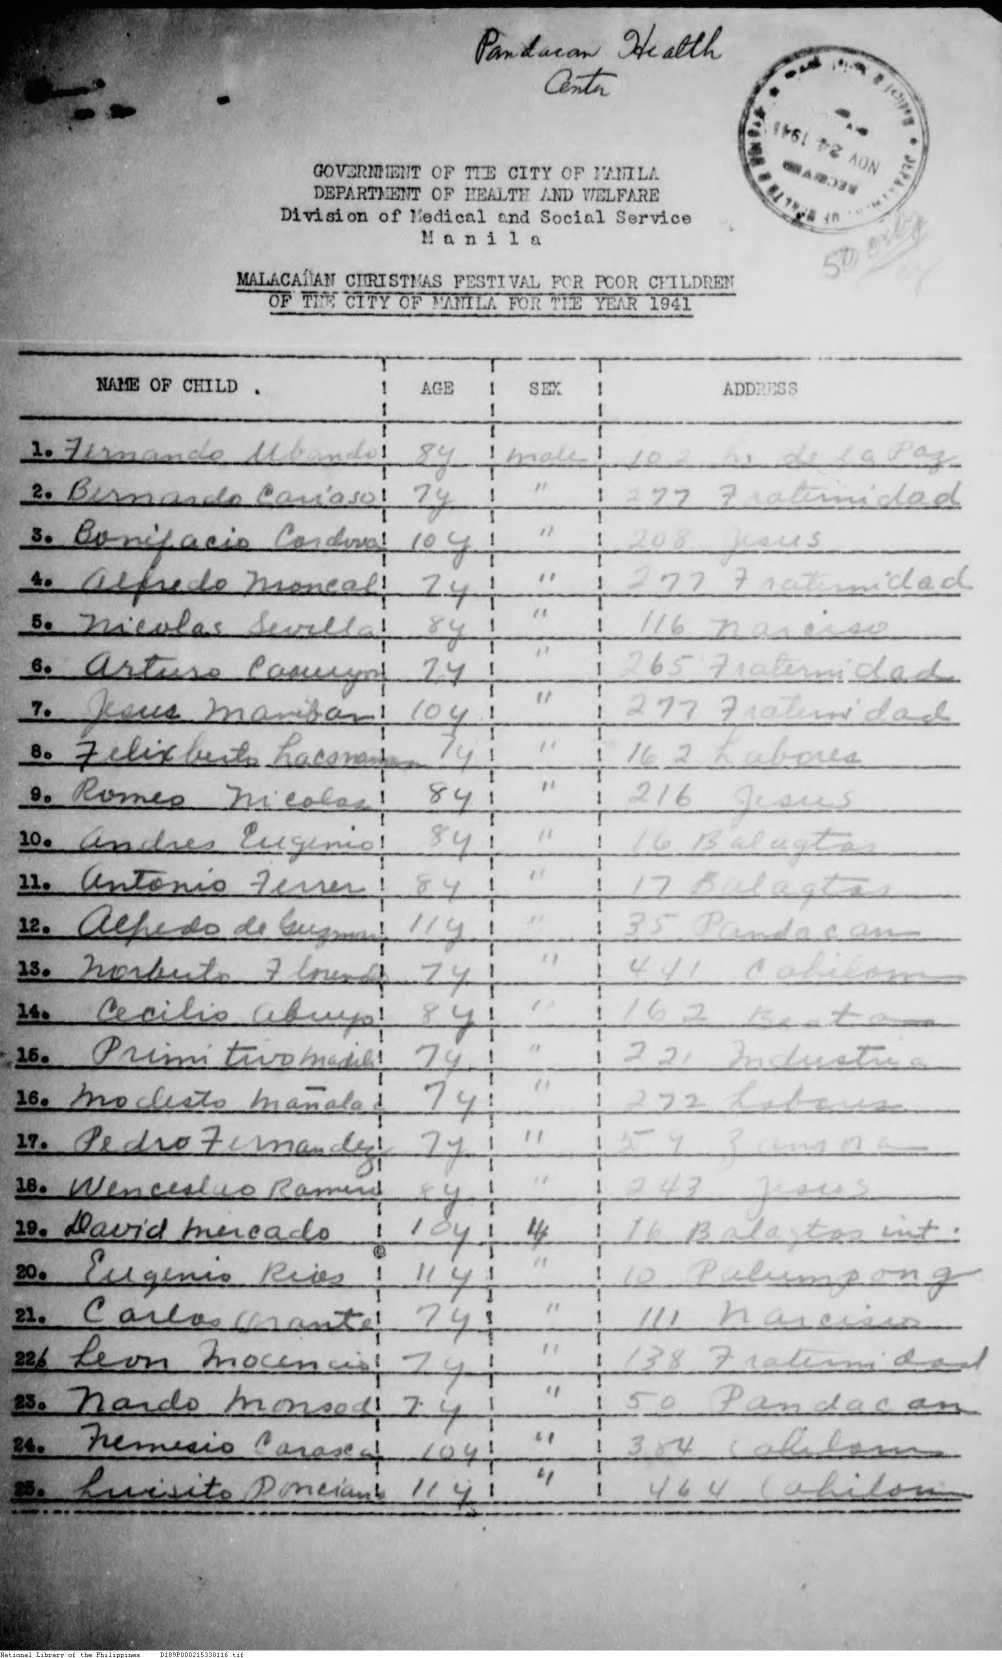 Pandacan Health
Center
RECEIVED
NOV 24 1941
GOVERNMENT OF THE CITY OF MANILA
DEPARTMENT OF HEALTH AND WELFARE
Division of Medical and Social Service
M a n i l a
50
MALACAÑAN CHRISTMAS FESTIVAL FOR POOR CHILDREN
OF THE CITY OF MANILA FOR THE YEAR 1941
NAME OF CHILD . AGE SEX ADDRESS
1. Fernando Ubando 8y male 102 de la Paz
2. Bernardo Cariaso 7y " 277 Fraternidad
3. Bonifacio Cordova 10y " 208 Jesus
4. Alfredo Moncal 7y " 277 Fraternidad
5. Nicolas Sevilla 8y " 116 Narciso
6. Arturo 7y " 265 Fraternidad
7. Jesus Maniban 10y " 277 Fraternidad
8. Felixberto Lacsamana 7y " 162 Labores
9. Romeo Nicolas 8y " 216 Jesus
10. Andres Eugenio 8y " 16 Balagtas
11. Antonio Ferrer 8y " 17 Balagtas
12. Alfredo de Guzman 11y " 35 Pandacan
13. Norberto Florendo 7y " 441 Cahilom
14. Cecilio Abuyo 8y " 162 Beata
15. Primitivo 7y " 221 Industria
16. Modesto Mañalac 7y " 272 Labores
17. Pedro Fernandez 7y " 59 Zamora
18. Wenceslao Ramero 8y " 243 Jesus
19. David Mercado 10y " 16 Balagtas int.
20. Eugenio Rios 11y " 10 Palumpong
21. Carlos Orante 7y " 111 Narciso
22. Leon Inocencio 7y " 138 Fraternidad
23. Nardo Monsod 7y " 50 Pandacan
24. Nemesio Carasca 10y " 384 Cahilom
25. Luisito Ponciano 11y " 464 Cahilom
National Library of the Philippines D189P000215330116.tif